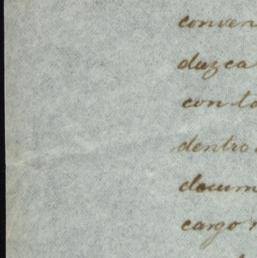 conven
duzca
con la
dentro
docum
cargo